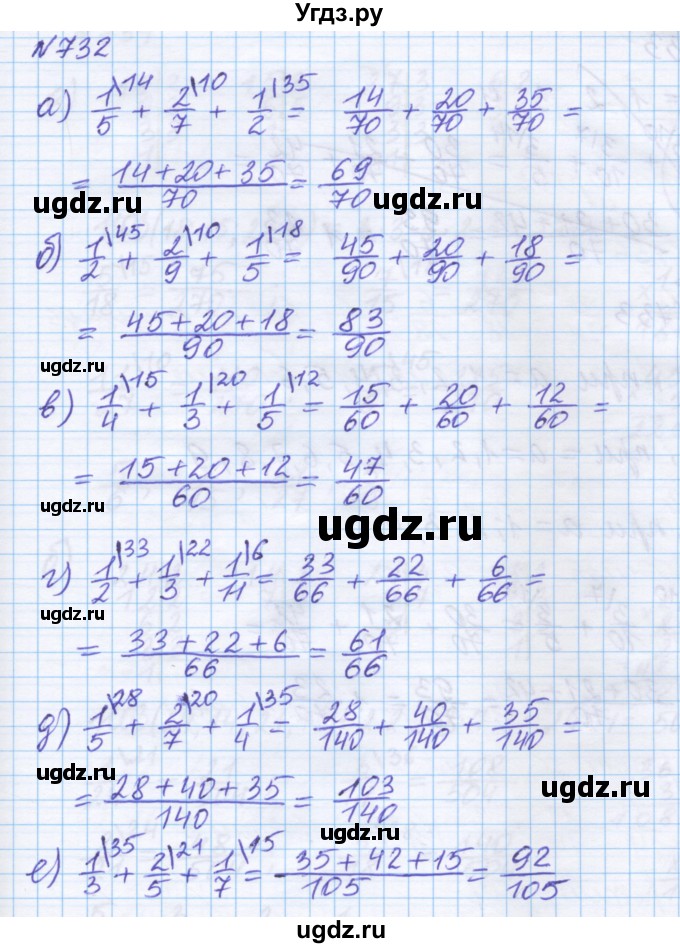 Угдз.ру
№732
а) 1/5\14 + 2/7\10 + 1/2\35 = 14/70 + 20/70 + 35/70 =
= (14+20+35)/70 = 69/70
ugdz.ru ugdz.ru
б) 1/2\45 + 2/9\10 + 1/5\18 = 45/90 + 20/90 + 18/90 =
= (45+20+18)/90 = 83/90
ugdz.ru
в) 1/4\15 + 1/3\20 + 1/5\12 = 15/60 + 20/60 + 12/60 =
= (15+20+12)/60 = 47/60
ugdz.ru
ugdz.ru
г) 1/2\33 + 1/3\22 + 1/11\6 = 33/66 + 22/66 + 6/66 =
ugdz.ru
= (33+22+6)/66 = 61/66
д) 1/5\28 + 2/7\20 + 1/4\35 = 28/140 + 40/140 + 35/140 =
ugdz.ru ugdz.ru
= (28+40+35)/140 = 103/140
ugdz.ru
е) 1/3\35 + 2/5\21 + 1/7\15 = (35+42+15)/105 = 92/105
ugdz.ru
ugdz.ru